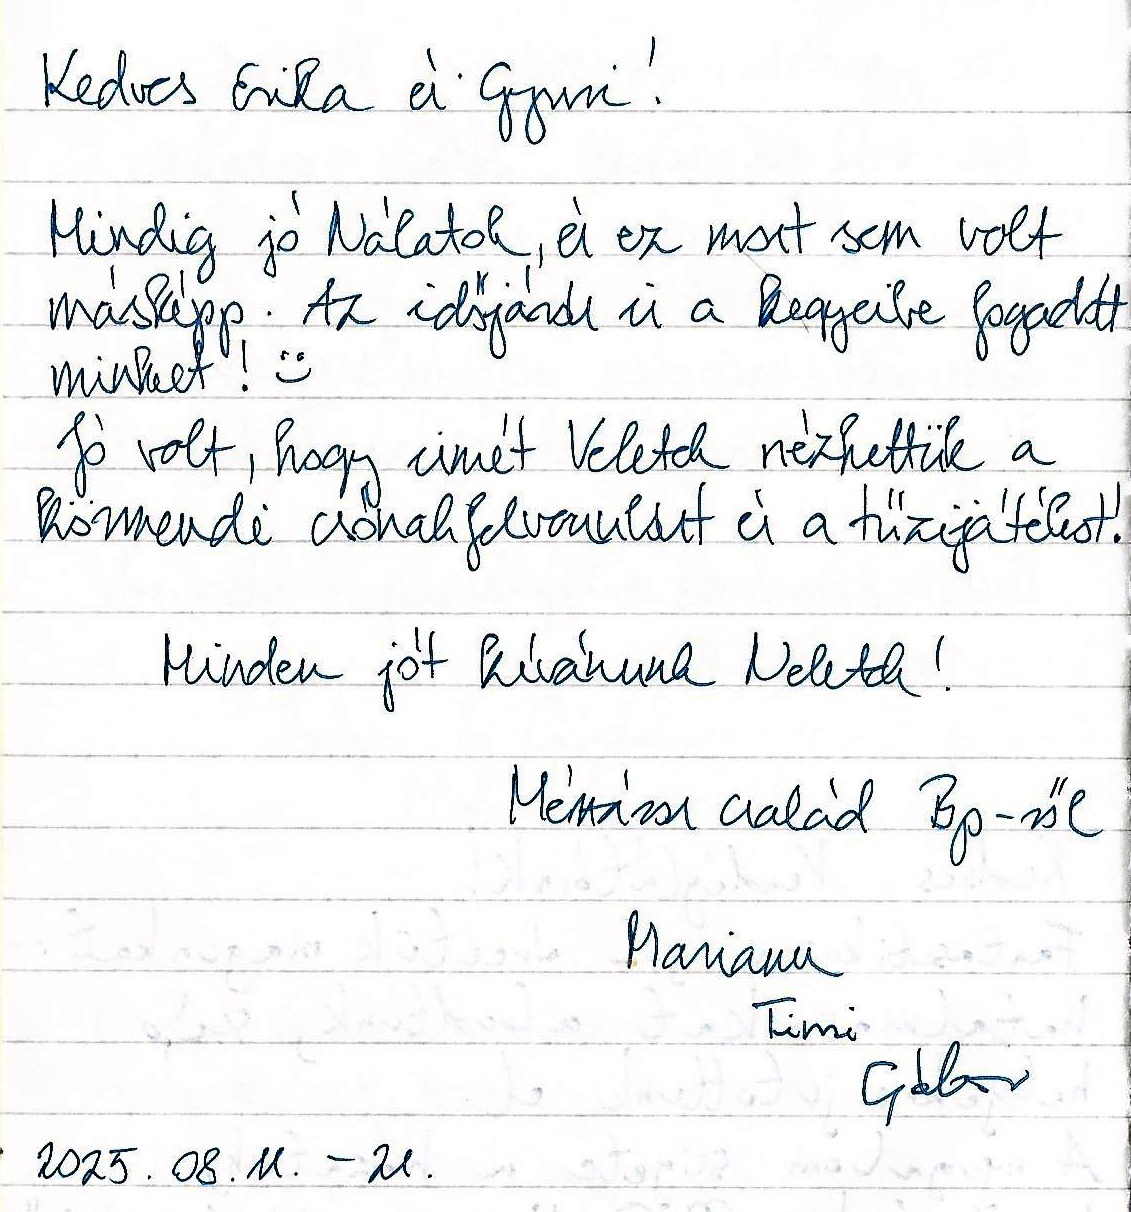 Kedves Erika és Gyuri!
Mindig jó Nálatok, és ez most sem volt
másképp. Az időjárás is a kegyeibe fogadott
minket! :)
Jó volt, hogy ismét Veletek nézhettük a
körmendi csónakfelvonulást és a tűzijátékot!
Minden jót kívánunk Nektek!
család Bp-ről
Mariann
Timi
Gábor
2025. 08. 11. - 21.